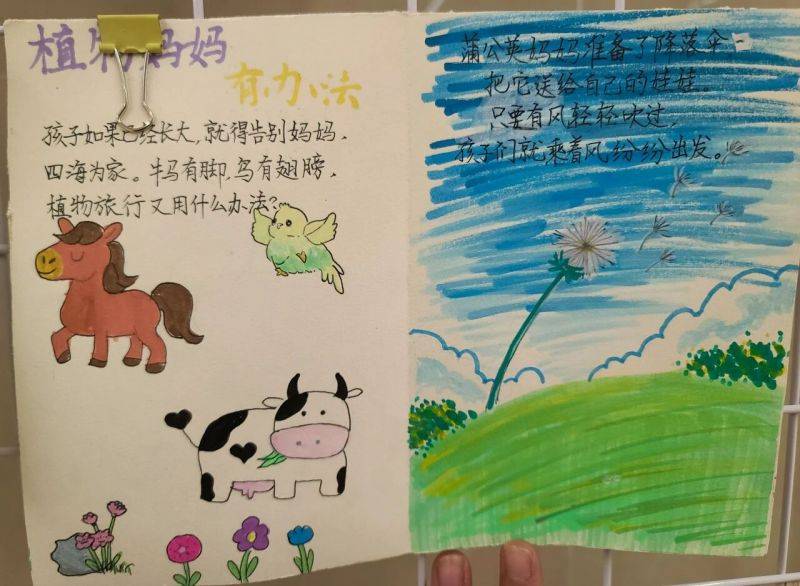 植物妈妈
有办法
孩子如果已经长大，就得告别妈妈，
四海为家。牛马有脚，鸟有翅膀，
植物旅行又用什么办法？
蒲公英妈妈准备了降落伞，
把它送给自己的娃娃。
只要有风轻轻吹过，
孩子们就乘着风纷纷出发。